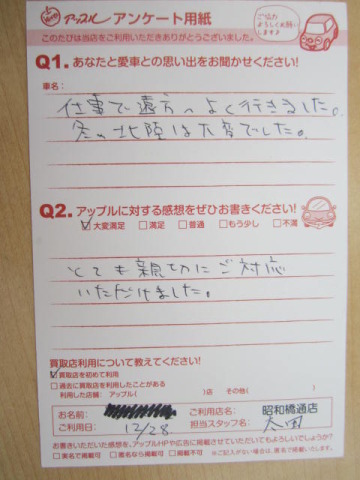 アップル アンケート用紙
ご協力
よろしくお願い
します♪
このたびは当店をご利用いただきありがとうございました。
Q1. あなたと愛車との思い出をお聞かせください!
車名:
仕事で遠方へよく行きました。
冬の北陸は大変でした。
Q2. アップルに対する感想をぜひお書きください!
☑大変満足 □満足 □普通 □もう少し □不満
とても親切にご対応
いただけました。
買取店利用について教えてください!
☑買取店を初めて利用
□過去に買取店を利用したことがある
利用した店舗: アップル( )店 その他( )
お名前: ご利用店名: 昭和橋通店
ご利用日: 12/28 担当スタッフ名: 太田
お書きいただいた感想を、アップルHPや広告に掲載させていただいてもよろしいでしょうか?
□実名で掲載可 □匿名なら掲載可 □掲載不可 ※ご記入がない場合は、匿名で掲載いたします。